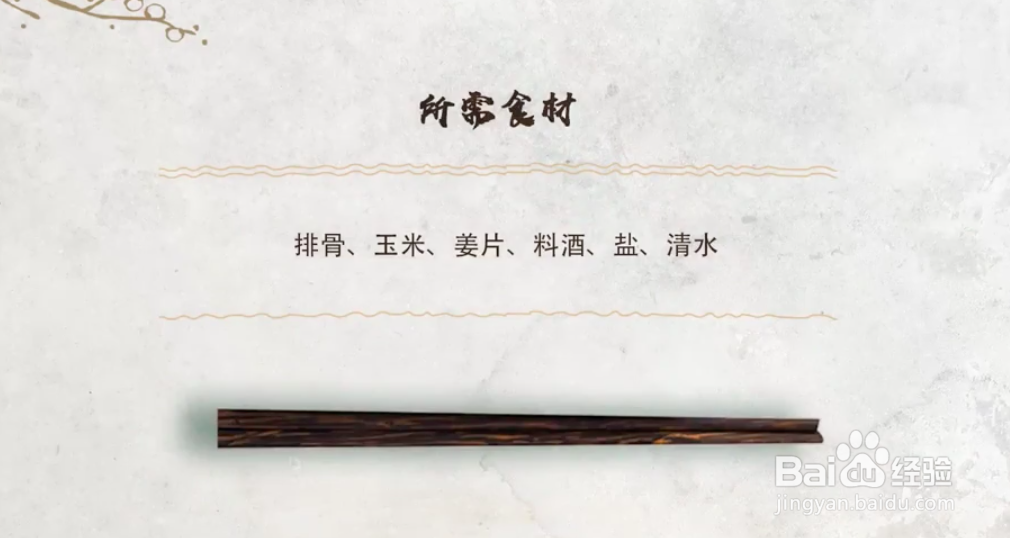 所需食材
排骨、玉米、姜片、料酒、盐、清水
Baidu经验
jingyan.baidu.com